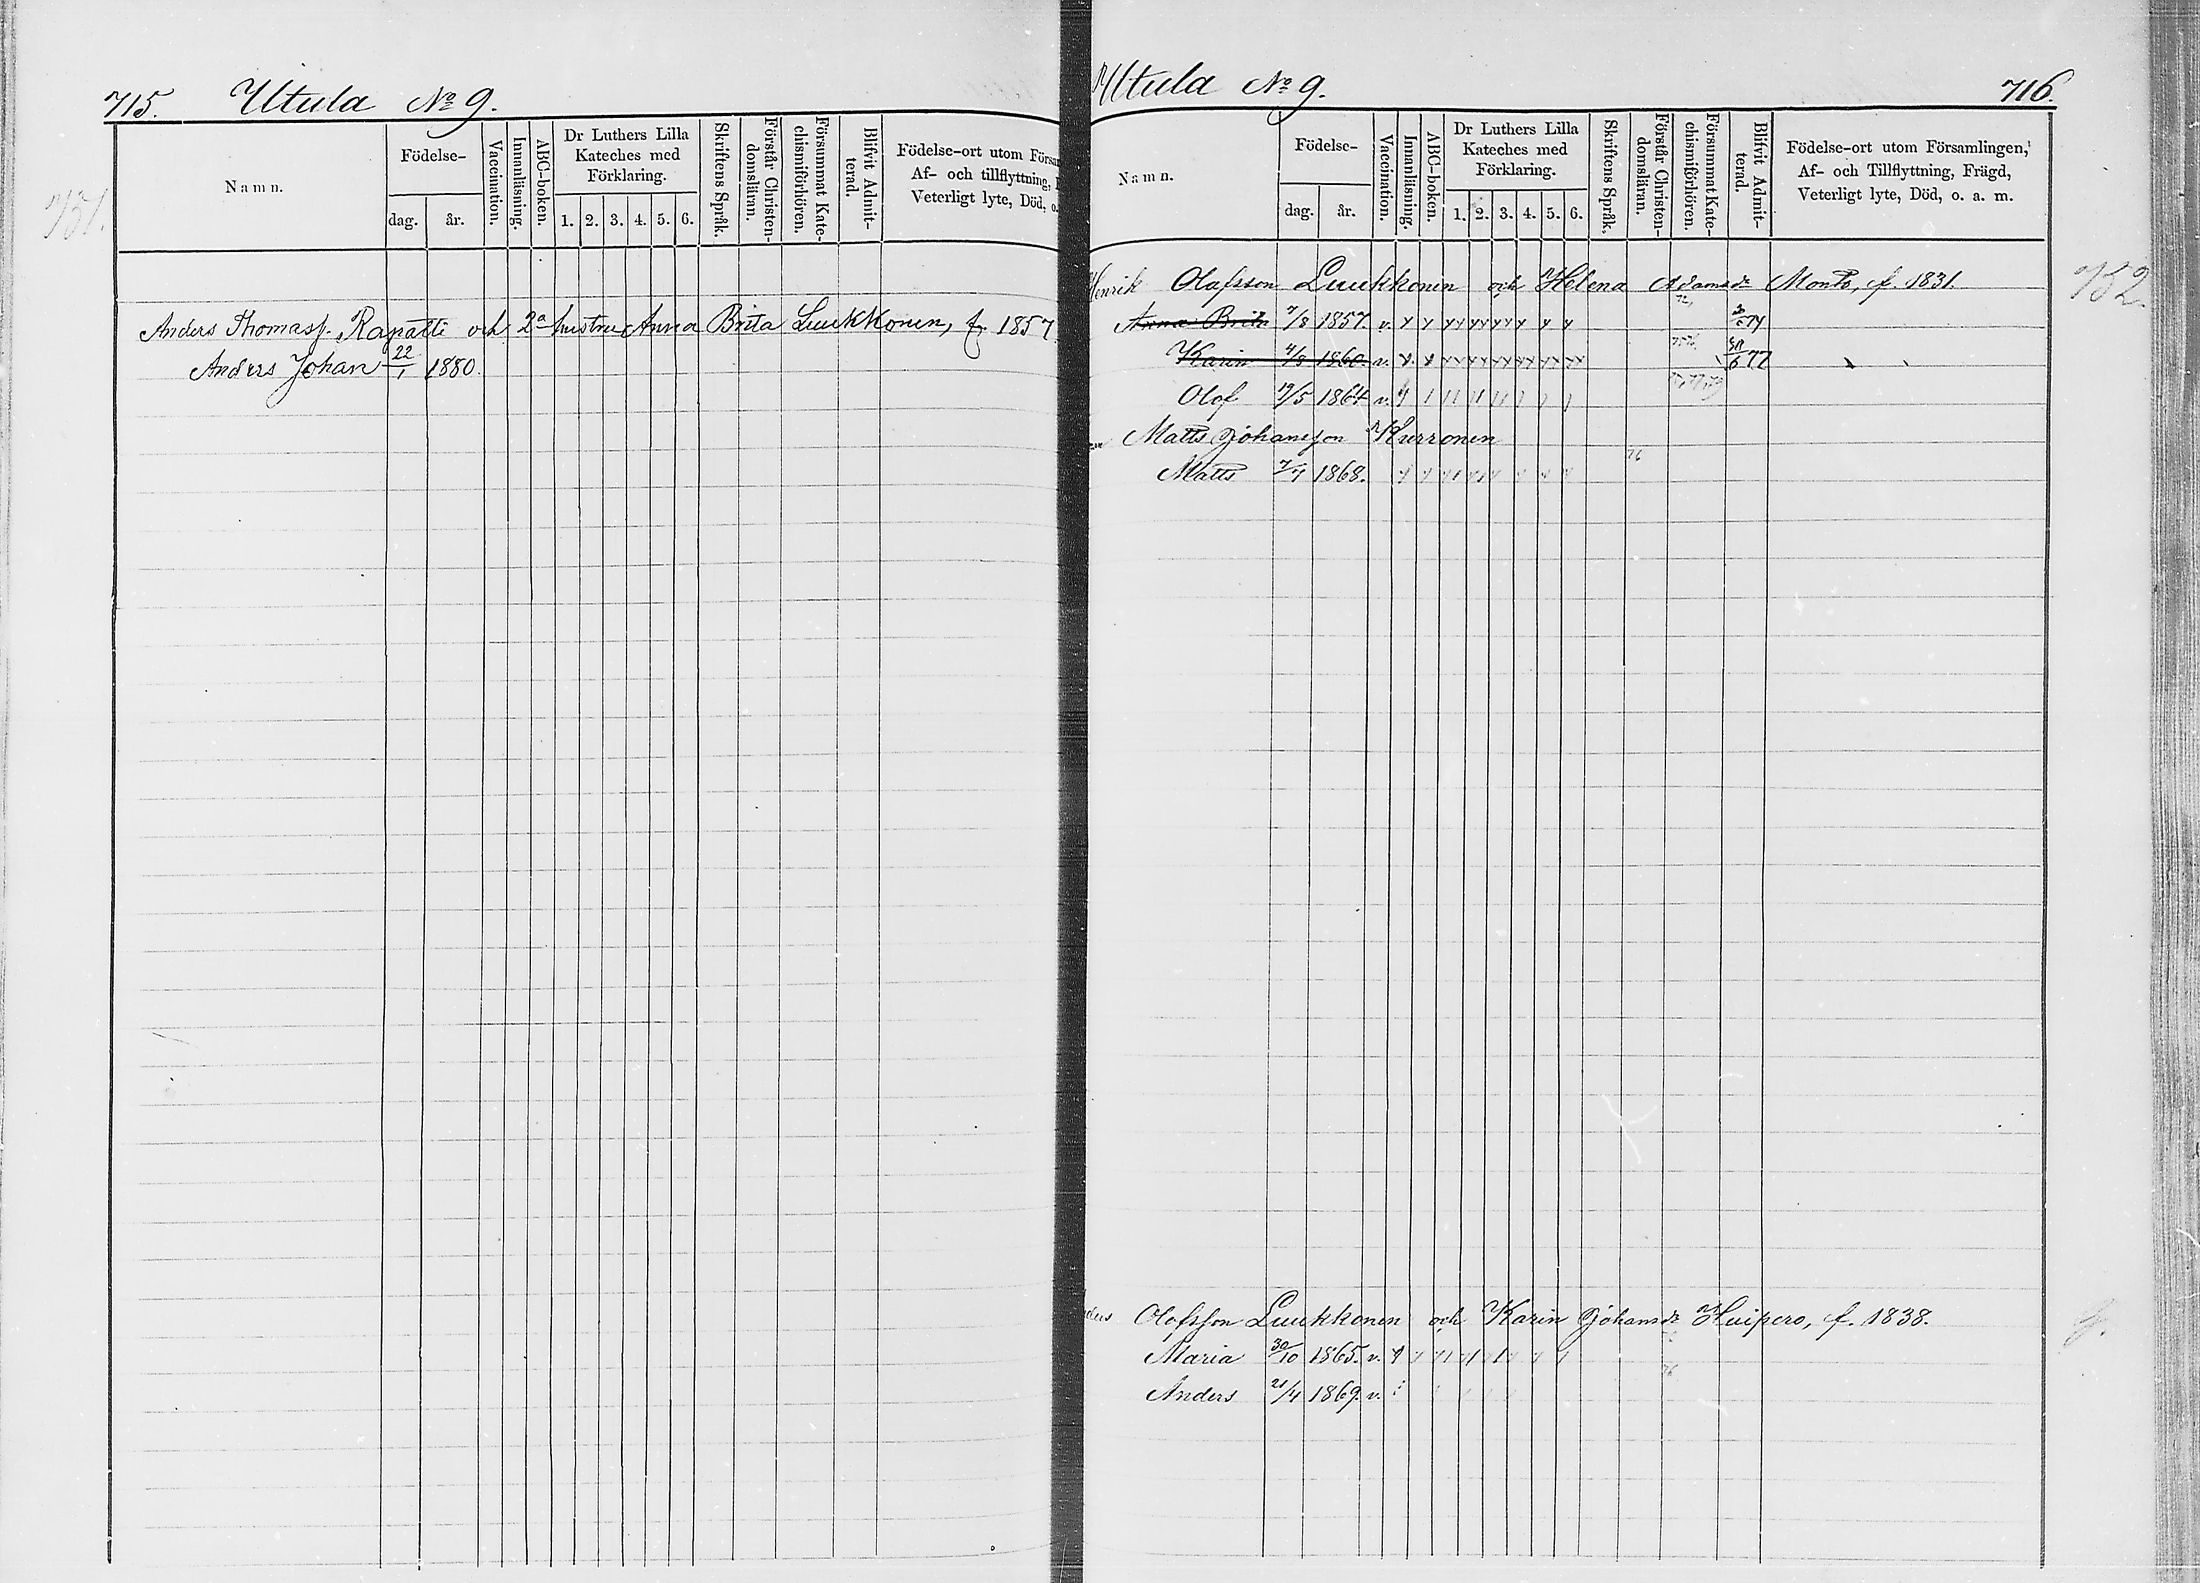 715. Utula No 9.
731.
Namn.
Födelse-
dag. år.
Vaccination.
Innanläsning.
ABC-boken.
Dr Luthers Lilla
Kateches med
Förklaring.
1. 2. 3. 4. 5. 6.
Skriftens Språk.
Förstår Christen-
domsläran.
Försummat Kate-
chismiförhören.
Blifvit Admit-
terad.
Födelse-ort utom Försam
Af- och tillflyttning,
Veterligt lyte, Död, o.
Anders Thomasf. Rapatti och 2a hustru Anna Brita Luukkonen, f. 1857.
Anders Johan 22/1 1880.
Utula No 9. 716.
732.
Namn.
Födelse-
dag. år.
Vaccination.
Innanläsning.
ABC-boken.
Dr Luthers Lilla
Kateches med
Förklaring.
1. 2. 3. 4. 5. 6.
Skriftens Språk.
Förstår Christen-
domsläran.
Försummat Kate-
chismiförhören.
Blifvit Admit-
terad.
Födelse-ort utom Församlingen,
Af- och Tillflyttning, Frägd,
Veterligt lyte, Död, o. a. m.
Henrik Olafsson Luukkonen och Helena Adamsdr Monto, f. 1831.
Anna Brita 7/8 1857. v.
Karin 4/8 1860. v. 77
Olof 19/5 1864 v.
Matts Johansson Kurronen
Matts 1868. 76
Olofsson Luukkonen och Karin Johansdr Huipero, f. 1838.
Maria 30/10 1865. v.
Anders 21/4 1869. v. 76